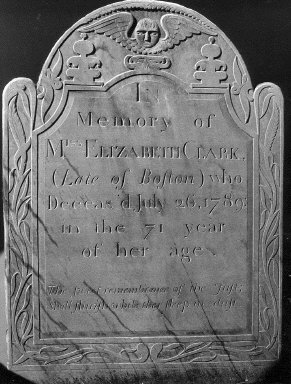 In
Memory of
Mrs ELIZABETH CLARK,
(Late of Boſton) who
Deceas'd July 26, 1789;
in the 71 year
of her age.
The ſweet remembrance of the Juſt,
Shall flouriſh while they ſleep in duſt.